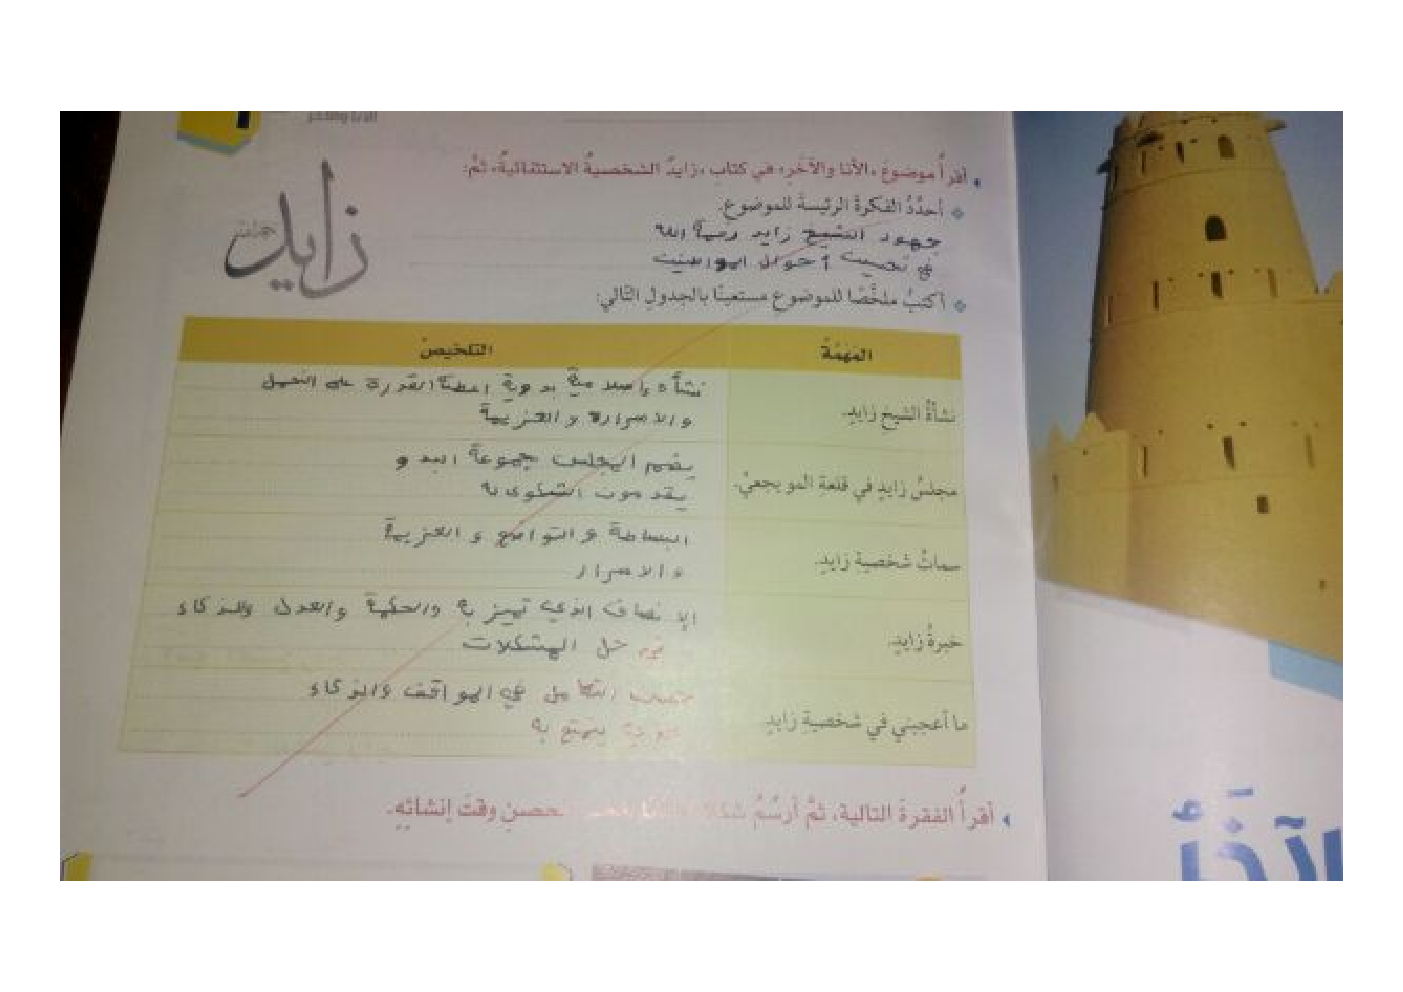 الأنا والآخر
أقرأُ موضوعَ «الأنا والآخَر» في كتاب «زايدٌ الشخصيةُ الاستثنائيةُ»، ثمَّ:
زايد
أحدِّدُ الفكرةَ الرئيسةَ للموضوعِ.
جهود الشيخ زايد رحمة الله
في تحسين أحوال المواطنين
أكتبُ ملخَّصًا للموضوعِ مستعينًا بالجدولِ التّالي:
المَهَمَّةُ التلخيصُ
نشأةُ الشيخِ زايدٍ. نشأة إسلامية بدوية اعطتة القدرة على التحمل
والاصرار و العزيمة
مجلسُ زايدٍ في قلعةِ المويجعيِّ. يضم المجلس مجموعة البدو
يقدمون الشكوى له
سماتُ شخصيةِ زايدٍ. البساطة و التواضع و العزيمة
والاصرار
خبرةُ زايدٍ. الإنصاف الذي تميز به والحكمة والعدل والذكاء
في حل المشكلات
ما أعجبني في شخصيةِ زايدٍ. التأمل في المواقف والذكاء
يتمتع به
أقرأُ الفقرةَ التاليةَ، ثمَّ أرسُمُ شكلًا الحصنِ وقتَ إنشائِهِ.
الآخَرُ